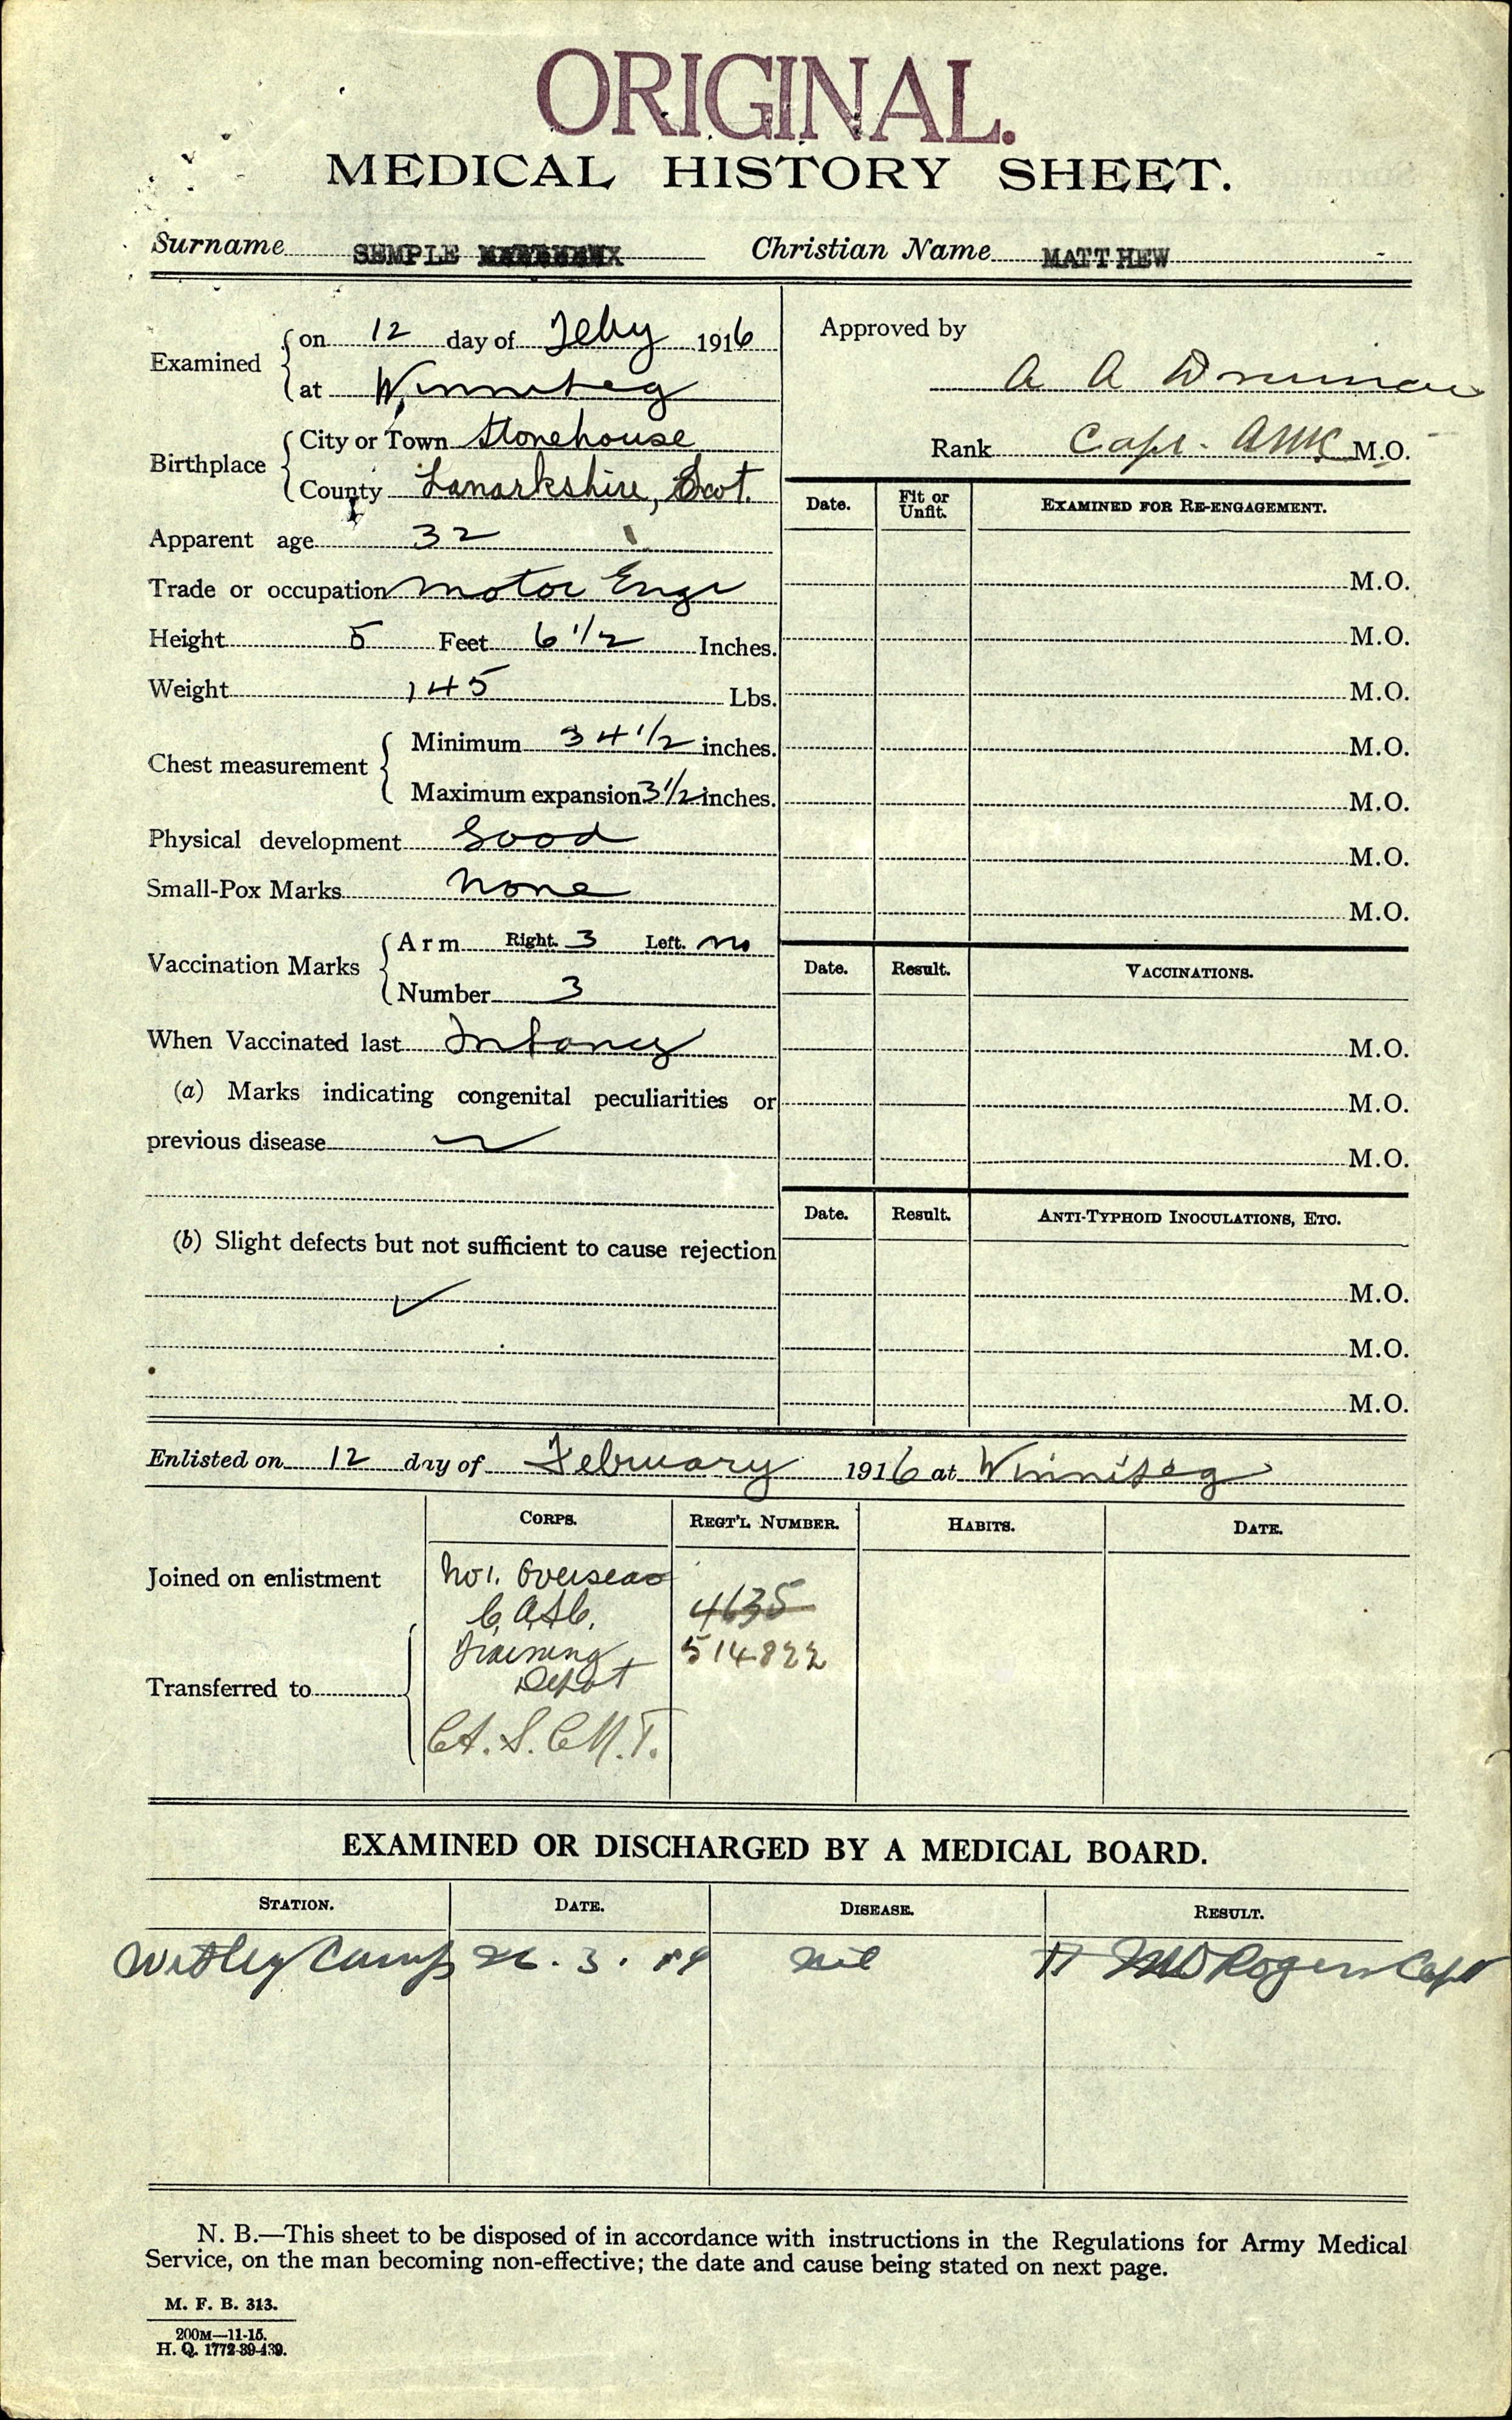 ORIGINAL.
MEDICAL HISTORY SHEET.
Surname SEMPLE Christian Name MATTHEW
Examined on 12 day of Feby 1916
at Winnipeg
Approved by
A A
Rank Capt. AMC M.O.
Birthplace City or Town Stonehouse
County Lanarkshire, Scot.
Date. Fit or Unfit. EXAMINED FOR RE-ENGAGEMENT.
Apparent age 32
M.O.
Trade or occupation Motor Engr
M.O.
Height 5 Feet 6 1/2 Inches.
M.O.
Weight 145 Lbs.
M.O.
Chest measurement Minimum 34 1/2 inches.
Maximum expansion 3 1/2 inches.
M.O.
Physical development Good
M.O.
Small-Pox Marks None
M.O.
Vaccination Marks Arm Right. 3 Left. no
Number 3
Date. Result. VACCINATIONS.
When Vaccinated last Infancy
M.O.
(a) Marks indicating congenital peculiarities or
M.O.
previous disease
M.O.
Date. Result. ANTI-TYPHOID INOCULATIONS, ETC.
(b) Slight defects but not sufficient to cause rejection
M.O.
M.O.
M.O.
Enlisted on 12 day of February 1916 at Winnipeg
CORPS. REGT'L NUMBER. HABITS. DATE.
Joined on enlistment No 1. Overseas
C.A.S.C. 4635
Training 514822
Depot
Transferred to
C.A.S.C.M.T.
EXAMINED OR DISCHARGED BY A MEDICAL BOARD.
STATION. DATE. DISEASE. RESULT.
Witley Camp 26.3.19 Nil Rogers Capt
N. B.—This sheet to be disposed of in accordance with instructions in the Regulations for Army Medical
Service, on the man becoming non-effective; the date and cause being stated on next page.
M. F. B. 313.
200M—11-15.
H. Q. 1772-39-439.